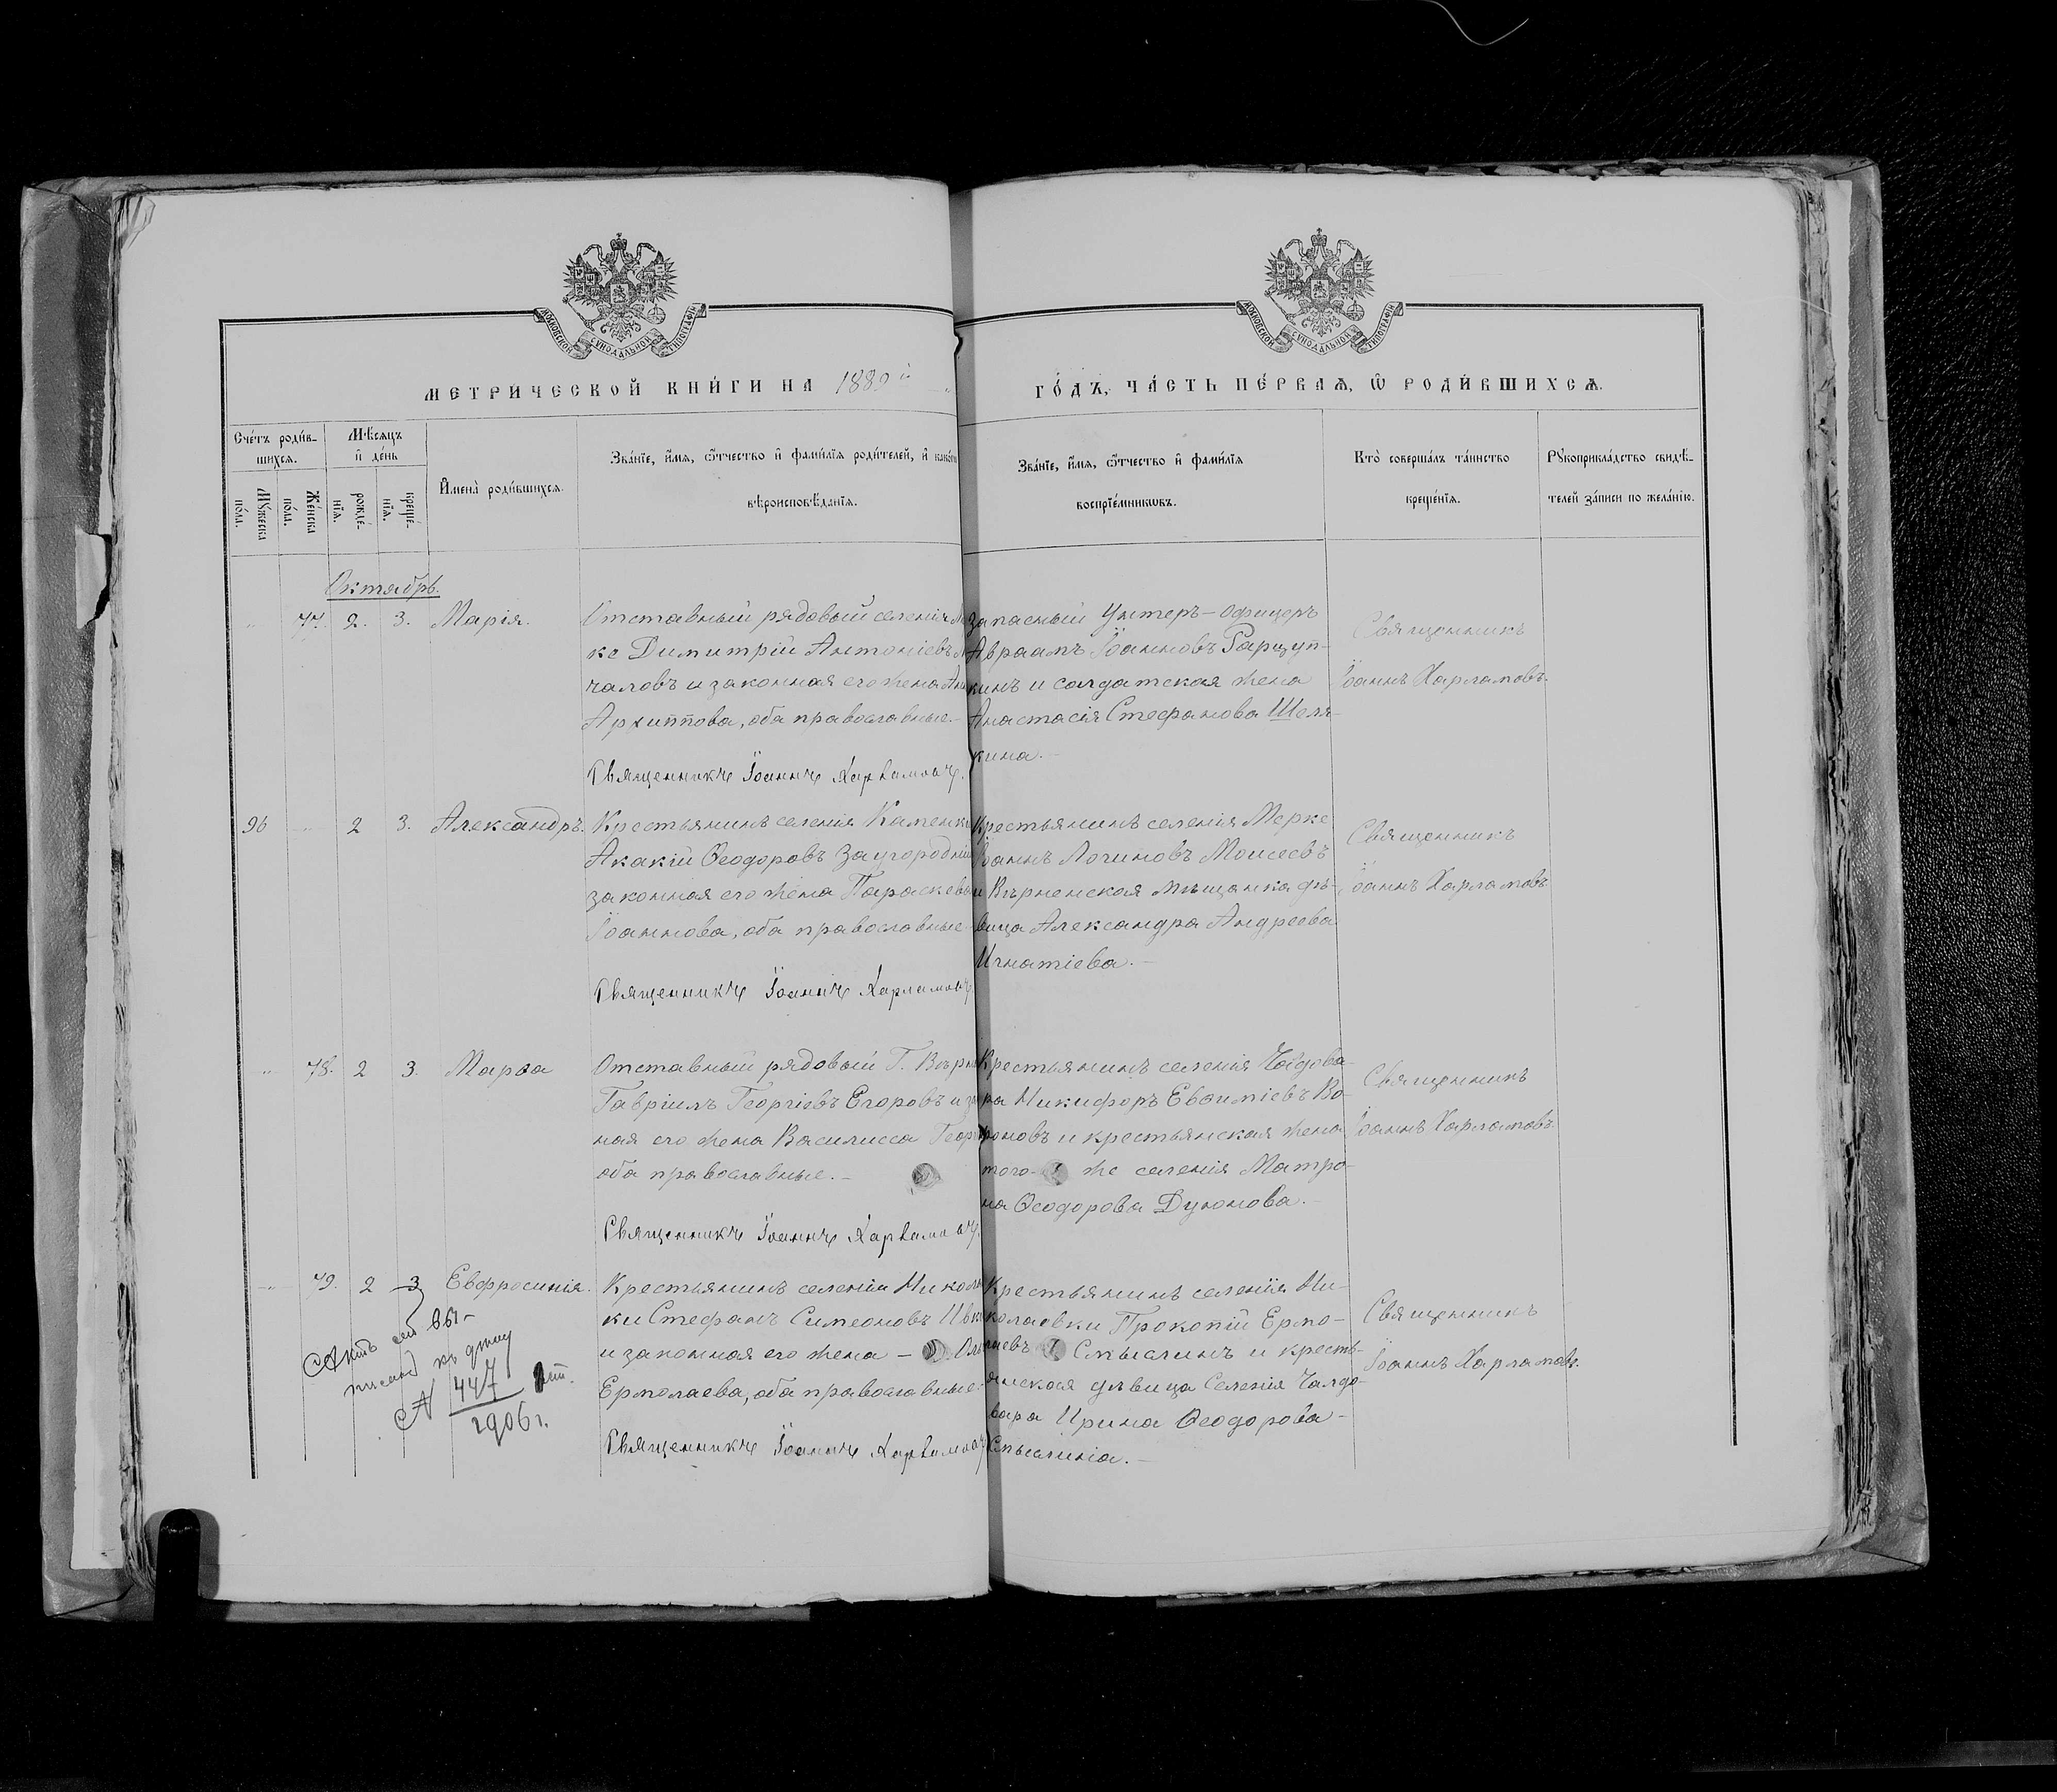 МОСКОВСКОЙ СѴНОДАЛЬНОЙ ТИПОГРАФІИ
МОСКОВСКОЙ СѴНОДАЛЬНОЙ ТИПОГРАФІИ
МЕТРИ́ЧЕСКОЙ КНИ́ГИ НА 1889й
ГО́ДЪ, ЧА́СТЬ ПЕ́РВАѦ, Ѿ РОДИ́ВШИХСѦ.
Сче́тъ роди́в-
шихсѧ.
Мѣ́сѧцъ
и҆ де́нь
Мꙋ́жеска
по́ла.
Же́нска
по́ла.
рожде́-
нїѧ.
креще́-
нїѧ.
И҆мена̀ роди́вшихсѧ.
Зва́нїе, и҆́мѧ, ѻ҆́тчество и҆ фами́лїѧ роди́телей, и҆ како́гѡ
вѣроисповѣ́данїѧ.
Зва́нїе, и҆́мѧ, ѻ҆́тчество и҆ фами́лїѧ
воспрїе́мникѡвъ.
Кто̀ соверша́лъ та́инство
креще́нїѧ.
Рꙋкоприкла́дство свидѣ́-
телей за́писи по жела́нїю.
Октябрь.
" 77. 2. 3. Марія.
Отставный рядовый селенія
ке Димитрій Антоніевъ
чаловъ и законная его жена
Архиппова, оба православные.—
Священникъ Іоаннъ Харламовъ.
Запасный Унтеръ-офицеръ
Авраамъ Іоанновъ Гарцуп-
кинъ и солдатская жена
Анастасія Стефанова Шеля-
кина.—
Священникъ
Іоаннъ Харламовъ.
96 " 2 3. Александръ.
Крестьянинъ селенія Каменки
Акакій Ѳеодоровъ Заугородній
законная его жена Параскева
Іоаннова, оба православные
Священникъ Іоаннъ Харламовъ.
Крестьянинъ селенія Мерке
Іоаннъ Логиновъ Моисеевъ
и Вѣрненская мѣщанка дѣ-
вица Александра Андреева
Игнатіева.—
Священникъ
Іоаннъ Харламовъ
" 78. 2 3. Марѳа
Отставный рядовый Г. Вѣрн
Гавріилъ Георгіевъ Егоровъ и за
ная его жена Василисса Геор
оба православные.—
Священникъ Іоаннъ Харламовъ.
Крестьянинъ селенія Чалдова-
ра Никифоръ Евѳиміевъ Во-
роновъ и крестьянская жена
того-же селенія Матро-
на Ѳеодорова Дуюнова.—
Священникъ
Іоаннъ Харламовъ
" 79. 2 3 Евфросинія.
Крестьянинъ селенія Никола
ки Стефанъ Симеоновъ
и законная его жена —
Ермолаева, оба православные.
Священникъ Іоаннъ Харламовъ
Крестьянинъ селенія Ни-
колаевки Прокопій Ермо-
лаевъ Смыслинъ и кресть-
янская дѣвица Селенія Чалдо-
вара Ирина Ѳеодорова
Смыслина.—
Священникъ
Іоаннъ Харламовъ.
Актъ сей вы-
писанъ къ дѣлу
№ 447
1906 г.